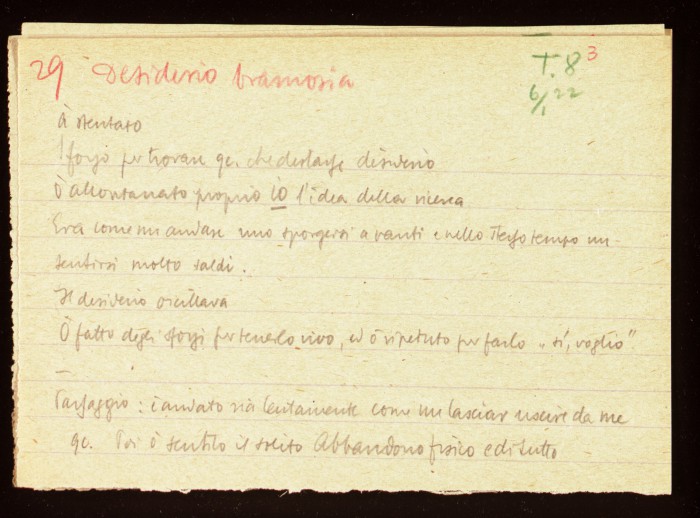 29 Desiderio bramosia
T. 8 3
6/1 22
À stentato
Sforzo per trovare qc. che destasse desiderio
Ò allontanato proprio io l'idea della ricerca
Era come un andare uno sporgersi avanti e nello stesso tempo un
sentirsi molto saldi.
Il desiderio oscillava
Ò fatto degli sforzi per tenerlo vivo, ed ò ripetuto per farlo „sí, voglio"
Passaggio: è andato via lentamente come un lasciar uscire da me
qc. Poi ò sentito il solito Abbandono fisico e di tutto